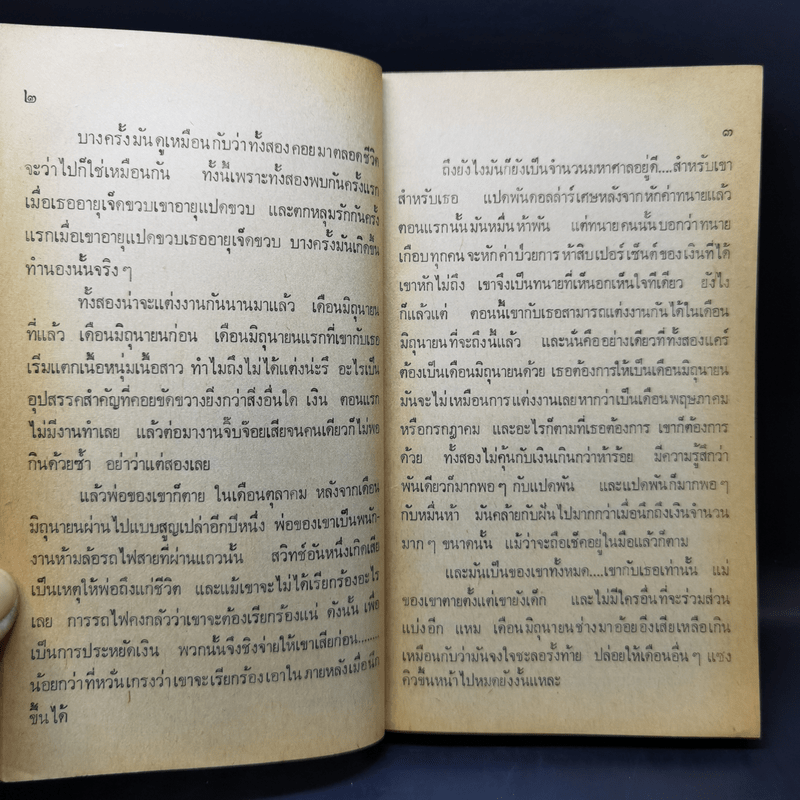 ๒
บางครั้งมันดูเหมือนกับว่าทั้งสองคอยมาตลอดชีวิต
จะว่าไปก็ใช่เหมือนกัน ทั้งนี้เพราะทั้งสองพบกันครั้งแรก
เมื่อเธออายุเจ็ดขวบเขาอายุแปดขวบ และตกหลุมรักกันครั้ง
แรกเมื่อเขาอายุแปดขวบเธออายุเจ็ดขวบ บางครั้งมันเกิดขึ้น
ทำนองนั้นจริง ๆ
ทั้งสองน่าจะแต่งงานกันนานมาแล้ว เดือนมิถุนายน
ที่แล้ว เดือนมิถุนายนก่อน เดือนมิถุนายนแรกที่เขากับเธอ
เริ่มแตกเนื้อหนุ่มเนื้อสาว ทำไมถึงไม่ได้แต่งน่ะรึ อะไรเป็น
อุปสรรคสำคัญที่คอยขัดขวางยิ่งกว่าสิ่งอื่นใด เงิน ตอนแรก
ไม่มีงานทำเลย แล้วต่อมางานจิ๊บจ๊อยเสียจนคนเดียวก็ไม่พอ
กินด้วยซ้ำ อย่าว่าแต่สองเลย
แล้วพ่อของเขาก็ตาย ในเดือนตุลาคม หลังจากเดือน
มิถุนายนผ่านไปแบบสูญเปล่าอีกปีหนึ่ง พ่อของเขาเป็นพนัก-
งานห้ามล้อรถไฟสายที่ผ่านแถวนั้น สวิทช์อันหนึ่งเกิดเสีย
เป็นเหตุให้พ่อถึงแก่ชีวิต และแม้เขาจะไม่ได้เรียกร้องอะไร
เลย การรถไฟคงกลัวว่าเขาจะต้องเรียกร้องแน่ ดังนั้น เพื่อ
เป็นการประหยัดเงิน พวกนั้นจึงชิงจ่ายให้เขาเสียก่อน........
น้อยกว่าที่หวั่นเกรงว่าเขาจะเรียกร้องเอาในภายหลังเมื่อนึก
ขึ้นได้
๓
ถึงยังไงมันก็ยังเป็นจำนวนมหาศาลอยู่ดี....สำหรับเขา
สำหรับเธอ แปดพันดอลล่าร์เศษหลังจากหักค่าทนายแล้ว
ตอนแรกนั้นมันหมื่นห้าพัน แต่ทนายคนนั้นบอกว่าทนาย
เกือบทุกคนจะหักค่าป่วยการห้าสิบเปอร์เซ็นต์ของเงินที่ได้
เขาหักไม่ถึง เขาจึงเป็นทนายที่เห็นอกเห็นใจทีเดียว ยังไง
ก็แล้วแต่ ตอนนี้เขากับเธอสามารถแต่งงานกันได้ในเดือน
มิถุนายนที่จะถึงนี้แล้ว และนั่นคืออย่างเดียวที่ทั้งสองแคร์
ต้องเป็นเดือนมิถุนายนด้วย เธอต้องการให้เป็นเดือนมิถุนายน
มันจะไม่เหมือนการแต่งงานเลยหากว่าเป็นเดือนพฤษภาคม
หรือกรกฎาคม และอะไรก็ตามที่เธอต้องการ เขาก็ต้องการ
ด้วย ทั้งสองไม่คุ้นกับเงินเกินกว่าห้าร้อย มีความรู้สึกว่า
พันเดียวก็มากพอ ๆ กับแปดพัน และแปดพันก็มากพอ ๆ
กับหมื่นห้า มันคล้ายกับฝันไปมากกว่าเมื่อนึกถึงเงินจำนวน
มาก ๆ ขนาดนั้น แม้ว่าจะถือเช็คอยู่ในมือแล้วก็ตาม
และมันเป็นของเขาทั้งหมด....เขากับเธอเท่านั้น แม่
ของเขาตายตั้งแต่เขายังเด็ก และไม่มีใครอื่นที่จะร่วมส่วน
แบ่งอีก แหม เดือนมิถุนายนช่างมาอ้อยอิ่งเสียเหลือเกิน
เหมือนกับว่ามันจงใจชะลอรั้งท้าย ปล่อยให้เดือนอื่น ๆ แซง
คิวขึ้นหน้าไปหมดยังงั้นแหละ